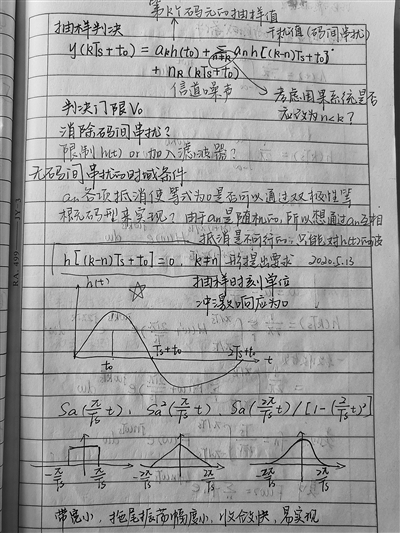 第k个码元的抽样值
抽样判决
干扰值(码间串扰)
y(kTs+t0) = akh(t0) + Σ anh[(k-n)Ts+t0]
n≠k
+ nR(kTs+t0)
信道噪声
考虑因果系统是否
应改为n<k?
判决门限V0
消除码间串扰?
限制h(t) or 加入滤波器?
无码间串扰的时域条件
an各项抵消使等式为0是否可以通过双极性等
码型来实现? 由于an是随机的,所以想通过an互相
抵消是不可行的,只能对h(t)的波
h[(k-n)Ts+t0]=0, k≠n 形提出要求 2020.5.13
h(t) 抽样时刻单位
冲激响应为0
t0 Ts+t0 2Ts+t0 t
Sa(π/Ts t), Sa²(π/Ts t), Sa(2π/Ts t)/[1-(2/Ts t)²]
-π/Ts π/Ts -2π/Ts 2π/Ts -2π/Ts 2π/Ts
带宽小, 拖尾振荡幅度小, 收敛快, 易实现